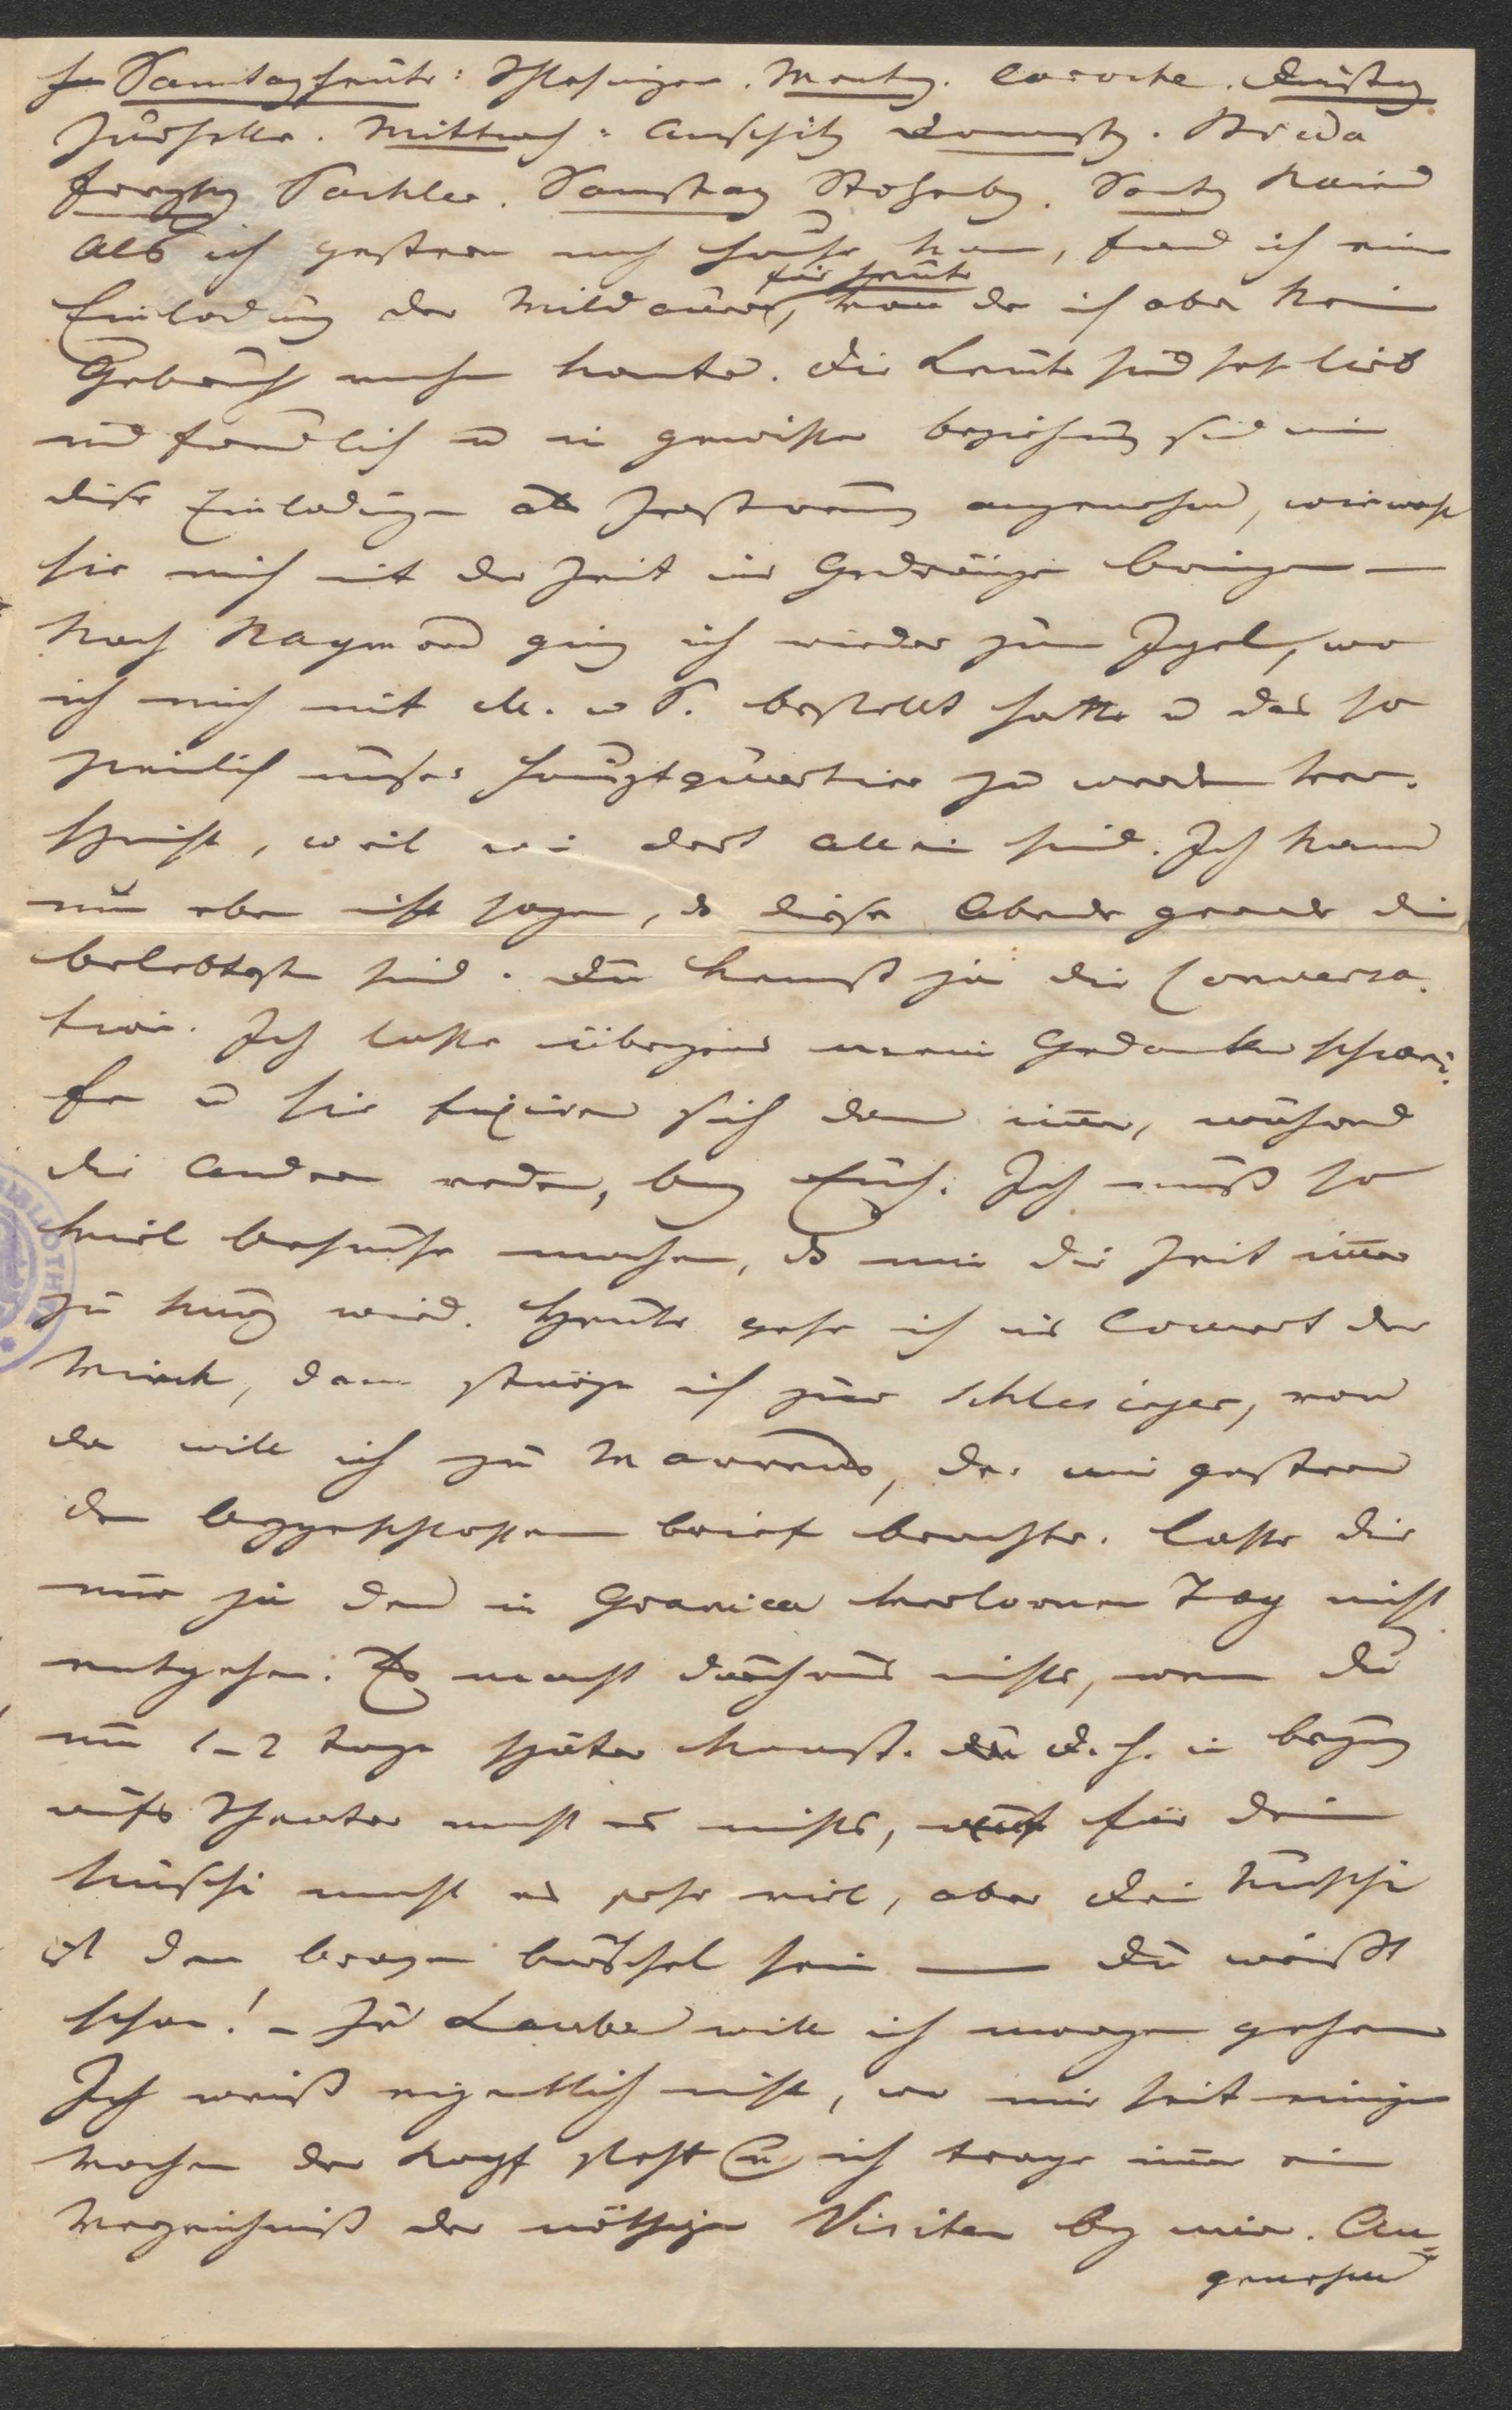 Samstag früh: Schlesinger. Montag. Laroche. Dinstag
Fürsten. Mittwoch: Anschütz Donnerstg. Breda
Freytag Pachler. Samstag Stoßenbg. Sontg Kaim
Als ich gestern nach Hause kam, fand ich eine
für heute
Einladung der Mildauer, von der ich aber keinen
Gebrauch machen konnte. Die Leute sind sehr lieb
und freundlich u in gewisser Beziehung sind mir
diese Einladungen als Zerstreuung angenehm, wiewohl
sie mich mit der Zeit ins Gedränge bringen —
Nach Raymond ging ich wieder zum Igel, wo
ich mich mit M. u P. bestellt hatte u das so
ziemlich unser Hauptquartier zu werden ver-
spricht, weil wir dort allein sind. Ich kann
nun eben nicht sagen, daß diese Abende gerade die
belebtesten sind. Du kennst ja die Conversa-
tion. Ich lasse übrigens meine Gedanken schwei-
fen u sie fixiren sich dann immer, während
die Andern reden, bey Euch. Ich muß so
viel Besuche machen, daß mir die Zeit immer
zu kurz wird. Heute gehe ich ins Concert der
Wieck, dann stürze ich zur Schlesinger, von
da will ich zu Marrens, der mir gestern
den beygeschlossenen Brief brachte. Lasse dir
nur ja den in Granica verlornen Tag nicht
entgehen. Es macht durchaus nichts, wenn du
um 1-2 Tage später kommst. d. h. in Bezug
aufs Theater macht es nichts, für dein
Muschi macht es sehr viel, aber dein Muschi
ist dem braven Burschel sein — Du weißt
schon! – Zu Laube will ich morgen gehen
Ich weiß eigentlich nicht, wo mir seit einigen
Wochen der Kopf steht u. ich trage immer ein
Verzeichniß der nöthigen Visiten bey mir. An-
genehm